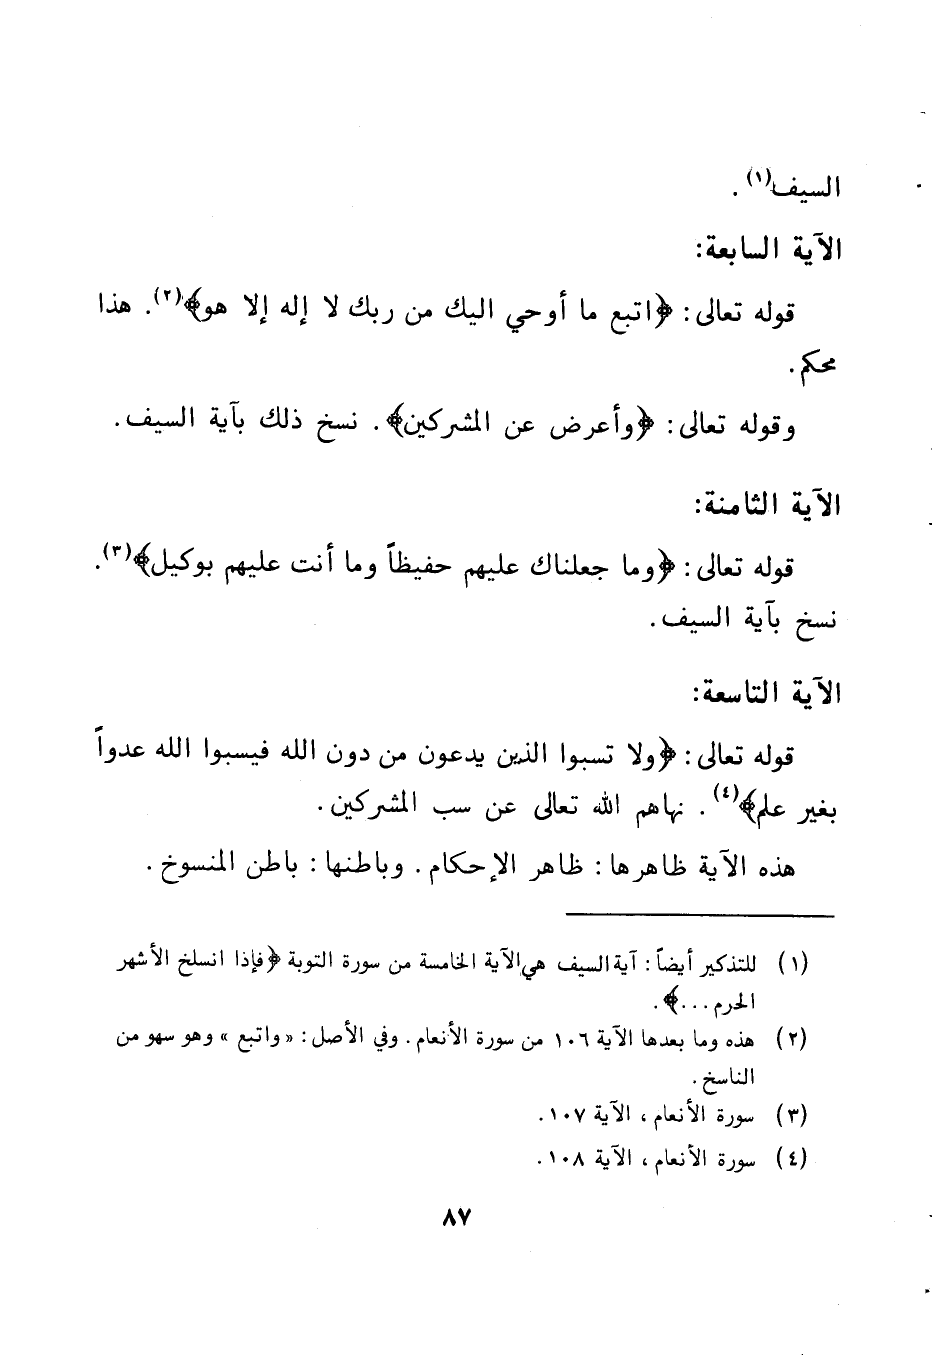 السيف(١) .
الآية السابعة:
قوله تعالى: ﴿اتبع ما أوحي اليك من ربك لا إله إلا هو﴾(٢). هذا
محكم.
وقوله تعالى: ﴿وأعرض عن المشركين﴾. نسخ ذلك بآية السيف.
الآية الثامنة:
قوله تعالى: ﴿وما جعلناك عليهم حفيظاً وما أنت عليهم بوكيل﴾(٣).
نسخ بآية السيف.
الآية التاسعة:
قوله تعالى: ﴿ولا تسبوا الذين يدعون من دون الله فيسبوا الله عدواً
بغير علم﴾(٤). نهاهم الله تعالى عن سب المشركين.
هذه الآية ظاهرها: ظاهر الإحكام. وباطنها: باطن المنسوخ.
(١) للتذكير أيضاً: آية السيف هي الآية الخامسة من سورة التوبة ﴿فإذا انسلخ الأشهر
الحرم...﴾.
(٢) هذه وما بعدها الآية ١٠٦ من سورة الأنعام. وفي الأصل: «واتبع» وهو سهو من
الناسخ.
(٣) سورة الأنعام، الآية ١٠٧.
(٤) سورة الأنعام، الآية ١٠٨.
٨٧